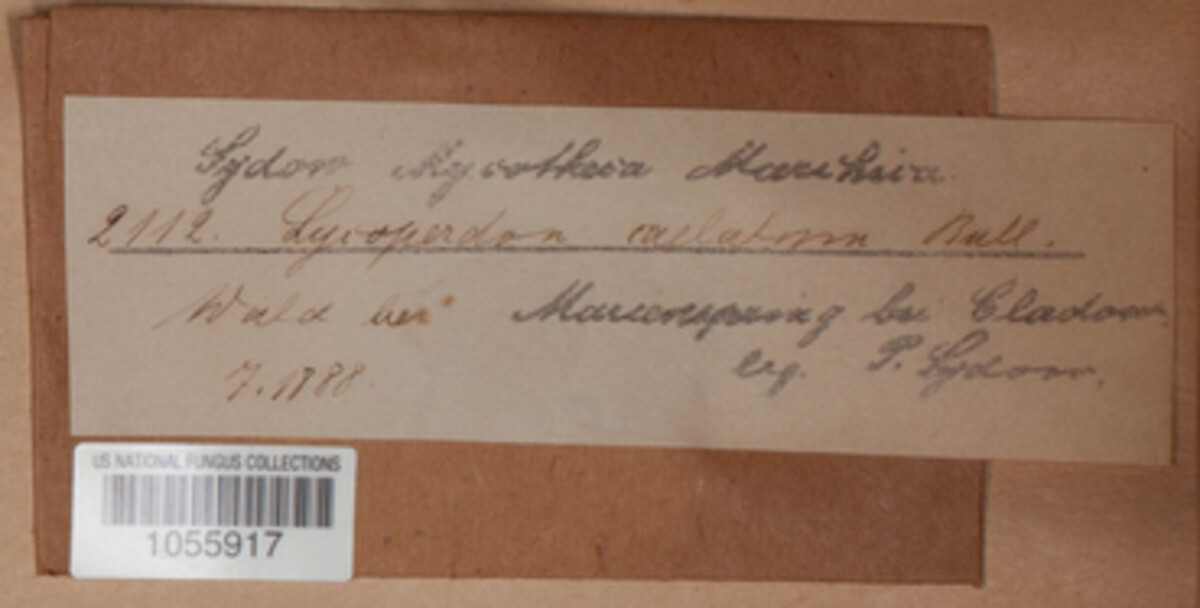 Sydow Mycotheca Marchica
2112. Lycoperdon caelatum Bull.
Wald bei Marienspring bei Cladow
7. 1888. leg. P. Sydow.
US NATIONAL FUNGUS COLLECTIONS
1055917